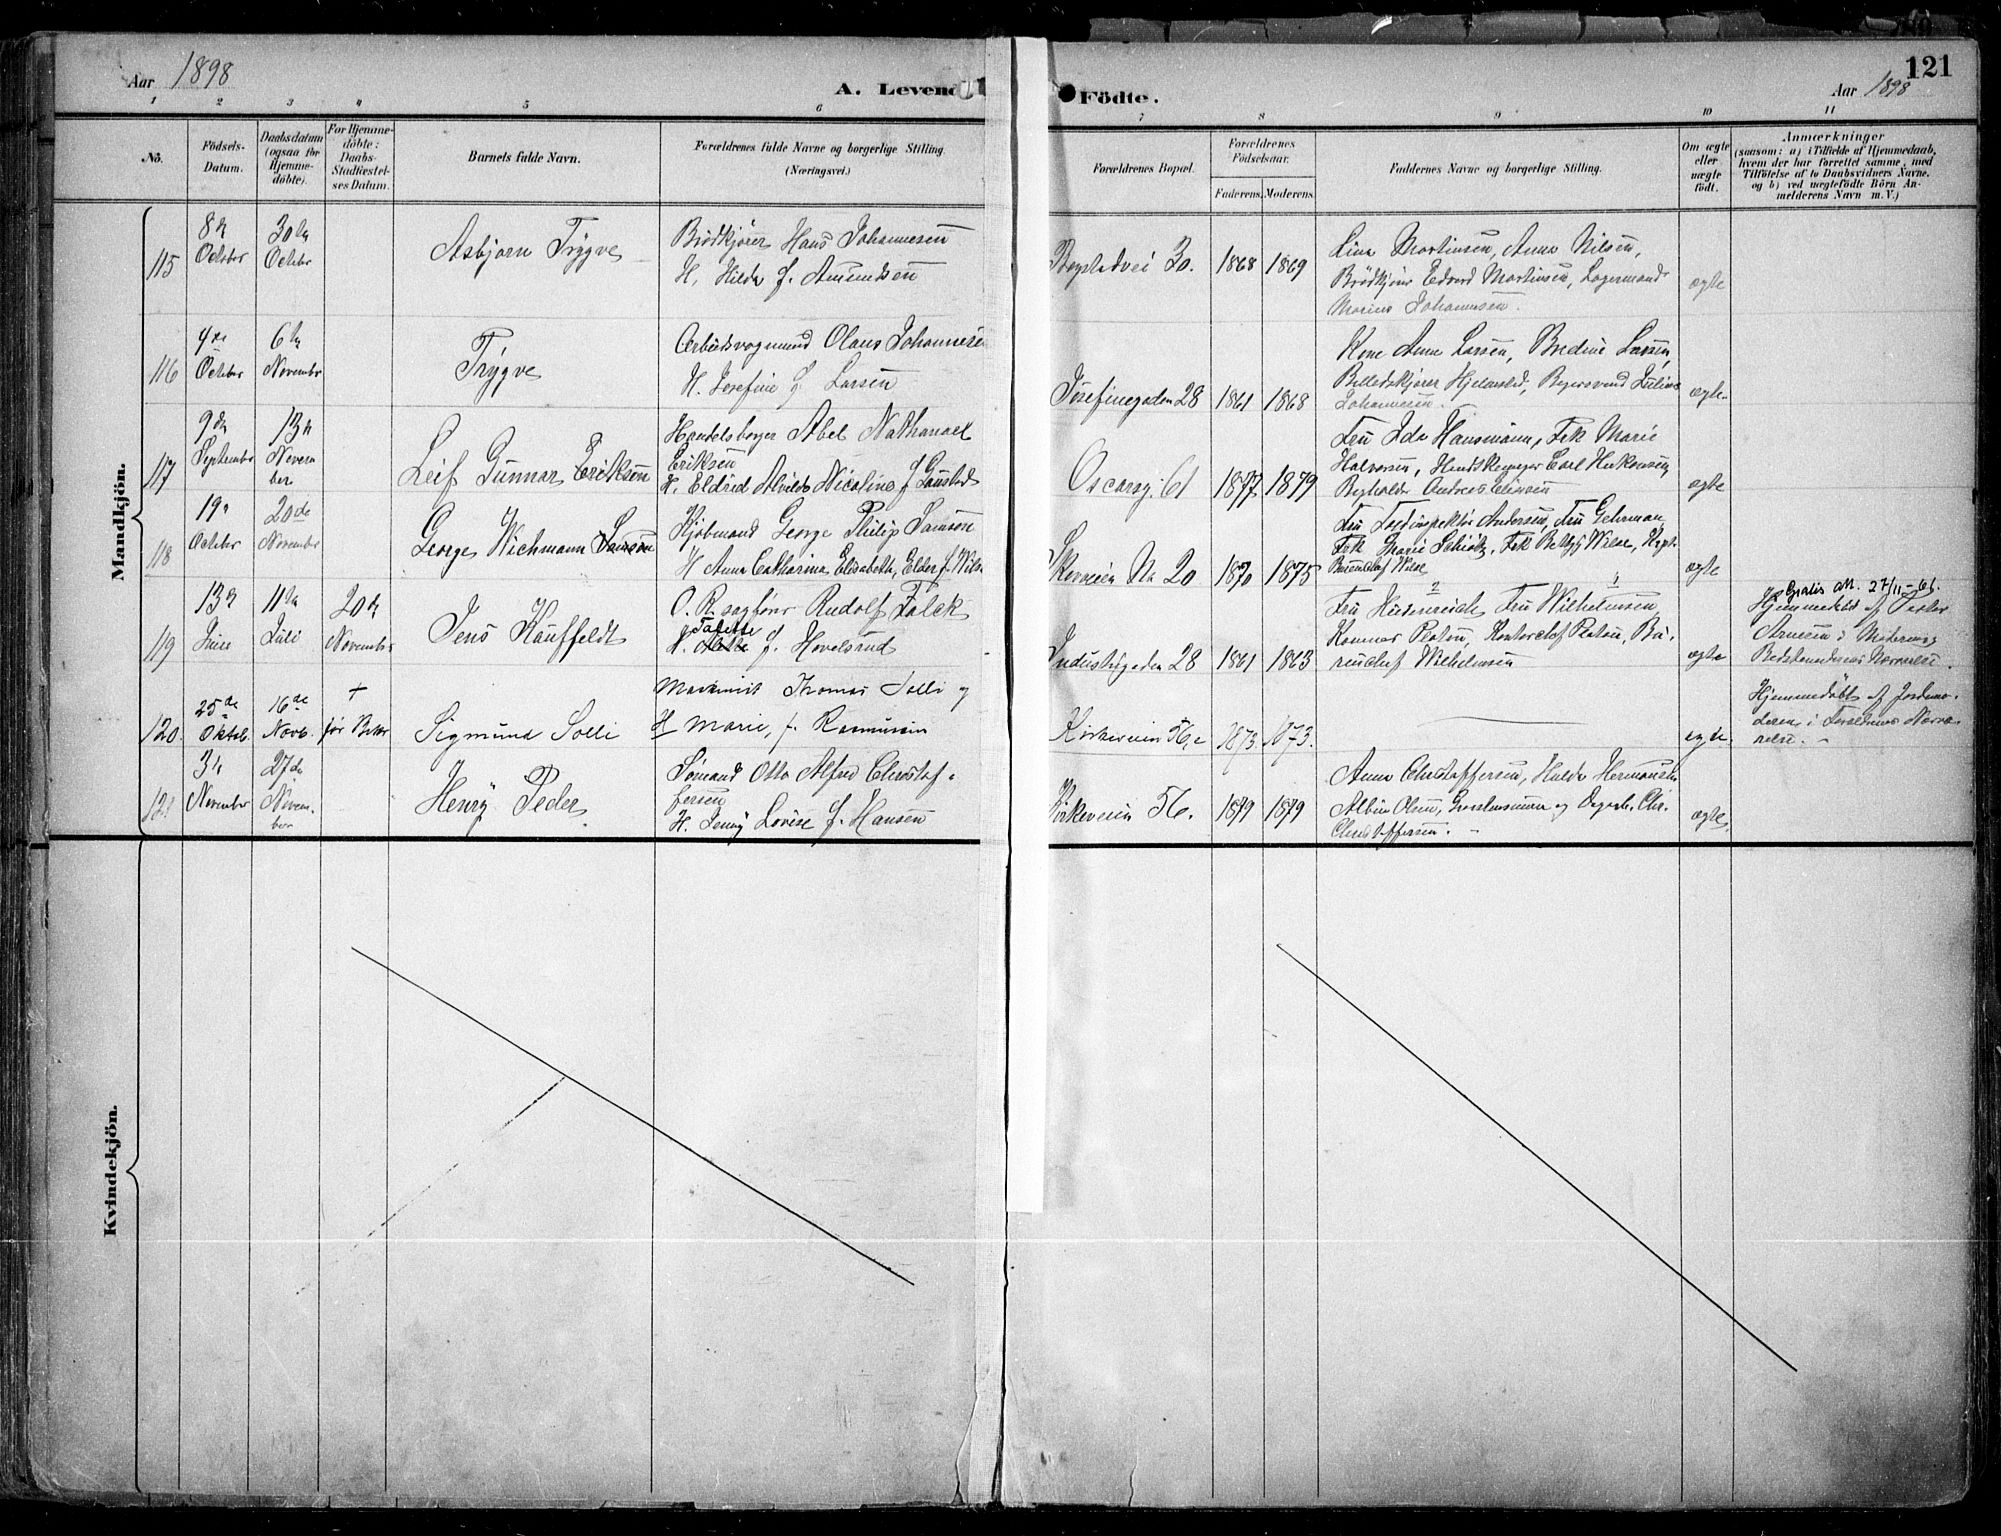 Aar 1898
A. Levende
Födte.
Aar 1898
121
1 2 3 4 5 6 7 8 9 10 11
No.
Födsels-
Datum.
Daabsdatum
(ogsaa for
Hjemme-
döbte).
For Hjemme-
döbte:
Daabs-
Stadfæstel-
ses Datum.
Barnets fulde Navn.
Forældrenes fulde Navne og borgerlige Stilling.
(Næringsvei.)
Forældrenes Bopæl.
Forældrenes
Födselsaar.
Faderens.
Moderens.
Faddernes Navne og borgerlige Stilling.
Om ægte
eller
uægte
födt.
Anmærkninger
(saasom: a) i Tilfælde af Hjemmedaab,
hvem der har forrettet samme, med
Tilföielse af to Daabsvidners Navne.
og b) ved uægtefödte Börn An-
melderens Navn m. V.)
Mandkjön.
115
8de
October
30te
Octobr
Asbjørn Trygve
Brødkjører Hans Johannesen
H. Hilda f. Amundsen
Bogstadvei 30.
1868
1869
Lina Martinsen, Anna Nilsen,
Brødkjører Edvard Martinsen, Lagermand
Marius Johannesen.
ægte
116
4de
October
6te
Novembr
Trygve
Arbeidsvognmand Olaus Johannesen
H. Josefine f. Larsen
Josefinegaden 28
1861
1868
Kone Anna Larsen, Bredine Larsen,
Johannesen.
ægte
117
9de
Septembr
13de
Novem
ber
Leif Gunnar Eriksen
Handelsborger Abel Nathanael
Eriksen
H. Eldrid Alvilde Nicoline f. Gaustad
Oscarsg. 61
1877
1879
Fru Ida Hausmann, Frk Marie
Halvorsen,
ægte
118
19de
October
20de
November
George Wichmann Samson
Kjøbmand George Philip Samson
H Anna Catharina Elisabeth, Elder f. Wilse
No 20
1870
1875
Fru Andersen, Fru Gehrman,
Frk Marie Schiøtz, Frk Betzy Wilse,
Wilse
ægte
119
13de
Juni
11te
Juli
20de
Novembr
Jens Kauffeldt
O. R. sagfører Rudolf Falck
H. f. Hovelsrud
Industrigaden 28
1861
1863
Fru Heidenreich, Fru Wilhelmsen,
Platou, Kontorchef Platou, Bu-
reauchef Wilhelmsen
ægte
Gratis att. 27/11-61.
Hjemmedøbt af Pastor
Arnesen i Moderens og
Bedstemoderens Nærværelse.
120.
25de
Oktob.
16de
Novb.
+
før Bekr
Sigmund Solli
Maskinist Thomas Solli og
H Marie, f. Rasmussen
Kirkeveien 56, c
1873
1873.
ægte.
Hjemmedøbt af Jordemo-
deren i Forældrenes Nærvæ-
relse. -
121
3de
November
27de
Novem-
ber
Henry Peder
Sømand Otto Alfred Christof-
fersen
H. Jenny Lovise f. Hansen
Kirkeveien 56.
1879
1879
Anna Christoffersen, Hulda Hermansen
Albin Olsen, og Chr.
Christoffersen. -
ægte.
Kvindekjön.